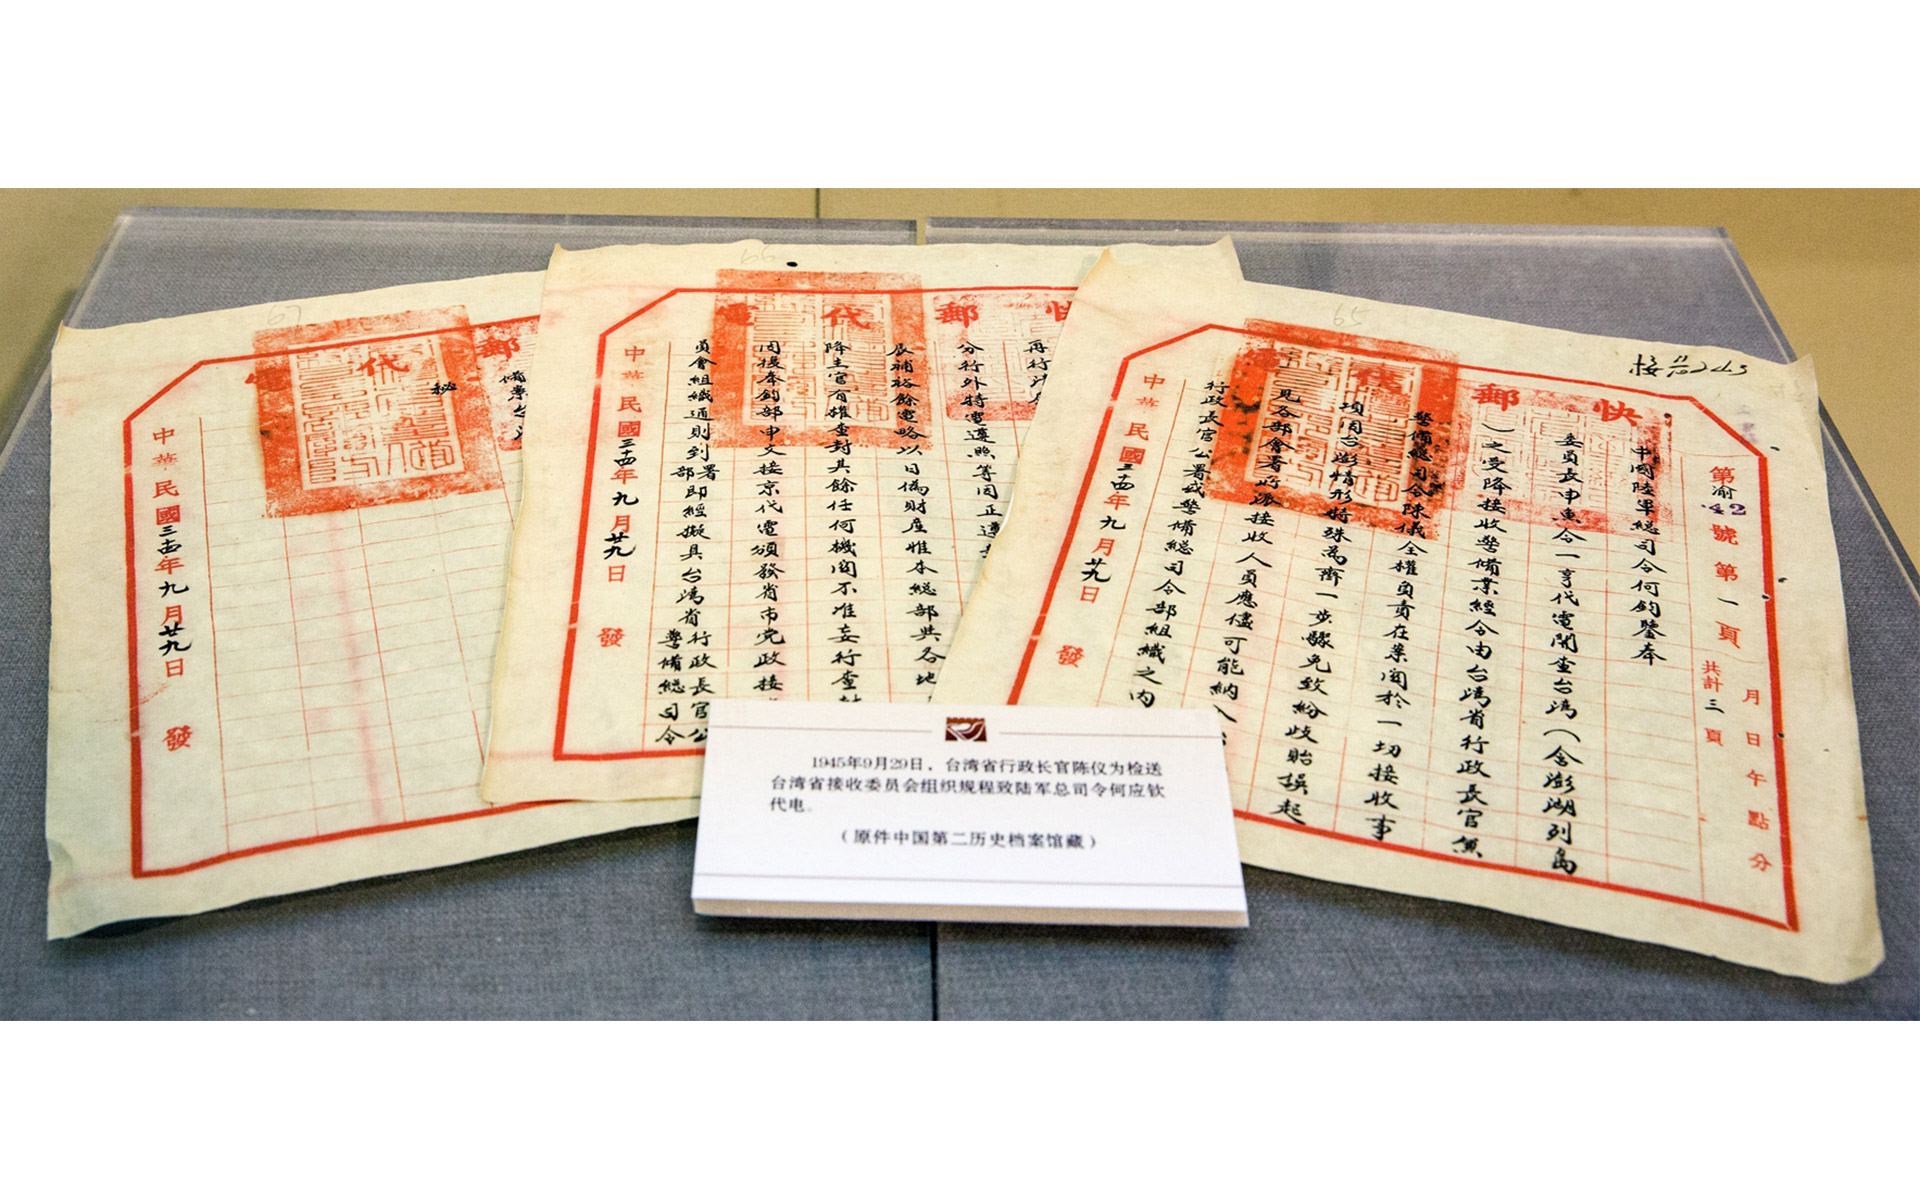 快郵代電
月日午點分
第渝42號第一頁共計三頁
中國陸軍總司令何鈞鑒奉
委員長申魚令一亨代電開查台灣(含澎湖列島
)之受降接收警備業經令由台灣省行政長官兼
警備總司令陳儀全權負責在案関於一切接收事
項因台澎情形特殊為齊一步驟免致紛歧貽誤起
見各部會署所派接收人員應儘可能納入
行政長官公署或警備總司令部組織之内
中華民國三十四年九月廿九日發
65
郵代電
再行
分行外特電遵照等因正遵
辰補裕餘電略以日偽財産惟本總部與各地
降主官有權查封其餘任何機関不准妄行查封
後奉鈞部申文接京代電頒發省市党政接
員會組織通則到部署即經擬具台灣省行政長官公
警備總司令
中華民國三十四年九月廿九日發
66
郵代電
備
秘
中華民國三十四年九月廿九日發
67
1945年9月29日，台湾省行政长官陈仪为检送
台湾省接收委员会组织规程致陆军总司令何应钦
代电。
（原件中国第二历史档案馆藏）